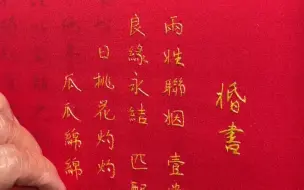 婚書
兩姓聯姻 壹
良緣永結 匹配
日桃花灼灼
瓜瓜綿綿